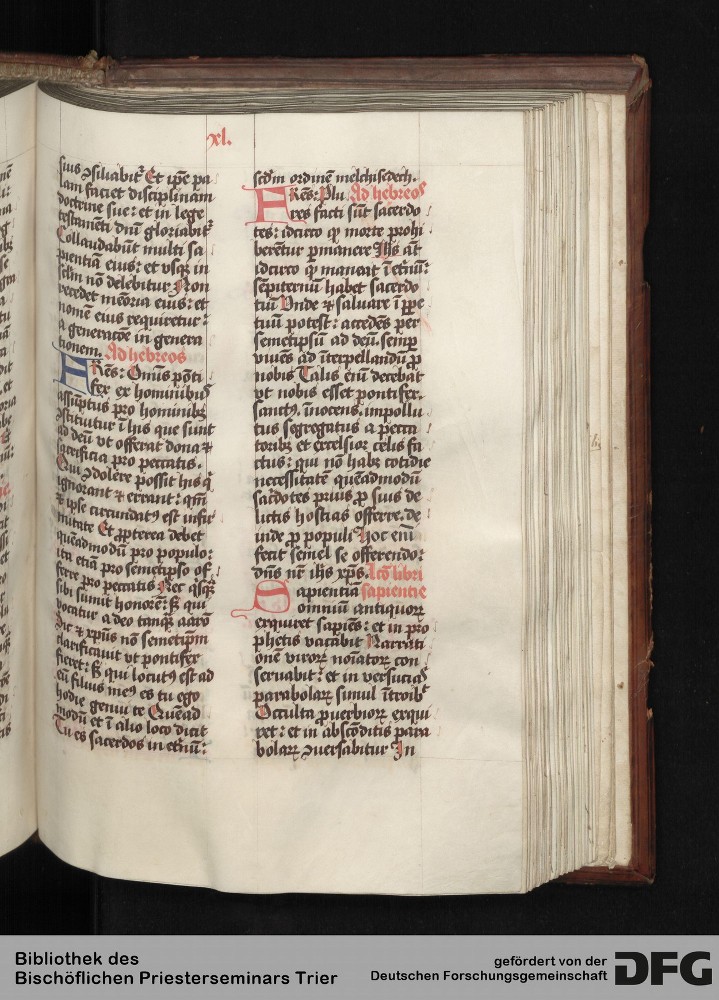 xl.
suis ꝯsiliabit᷑ Et ip̅e pa
lam faciet disciplinam
doctrine sue: et in lege
testam̅eti dn̅i gloriabit᷑
Collaudabūt multi sa
pientiā eius: et vsqꝫ in
sclm̅ nō delebitur Non
recedet mēoria eius: et
nomē eius requiretur:
a generacōe in genera
tionem. Ad hebreos
FRēs: Omīs pōti
fex ex hominibꝰ
assūptus pro hominibꝫ
ꝯstituitur ī his que sunt
ad deū vt offerat dona ⁊
sacrificia pro peccatis.
Qui ꝯdolere possit his q̇
ignorant ⁊ errant: qm̅
⁊ ipse circundatꝰ est infir
mitate Et ꝓpterea debet
quēadmodū pro populo:
ita etiā pro semetipso of
ferre pro peccatis Nec q̇sqꝫ
sibi sumit honorē: sꝫ qui
vocatur a deo tanqꝫ aarō
Sic ⁊ xp̅us nō semetip̅m
clarificauit vt pontifex
fieret: sꝫ qui locutꝰ est ad
eū filius meꝰ es tu ego
hodie genui te Quēad
modū et ī alio loco dicit
Tu es sacerdos in et̅nū:
scd̅m ordinē melchisedech.
FRēs: Plu Ad hebreos
res facti sūt sacerdo
tes: idcirco qꝫ morte prohi
berētur ꝑmanere Ih̅s aūt
idcirco qꝫ maneat ī et̅nū:
sēpiternū habet sacerdo
tiū Vnde ⁊ saluare ī ꝑpe
tuū potest: accedēs per
semetipsū ad deū. semꝑ
viuēs ad īterpellandū ꝓ
nobis Talis eni̅ decebat
vt nobis esset pontifex.
sanctꝰ. īnocens. impollu
tus segregatus a pecca
toribꝫ et excelsior celis fa
ctus: qui nō habꝫ cotidie
necessitatē quēadmodū
sac̅dotes prius ꝓ suis de
lictis hostias offerre. de
inde ꝓ populi Hoc eni̅
fecit semel se offerendo:
dn̅s nr̅ ih̅s xp̅s. Lcō libri
Sapientiā sapientie
omniū antiquoꝝ
exquiret sapiēs: et in pro
phetis vacabit Narrati
onē viroꝝ noi̅atoꝝ con
seruabit: et in versucias
parabolaꝝ simul ītroib᷑
Occulta ꝓuerbioꝝ exqui
ret: et in abscōditis para
bolaꝝ ꝯuersabitur In
Bibliothek des
Bischöflichen Priesterseminars Trier
gefördert von der
Deutschen Forschungsgemeinschaft DFG